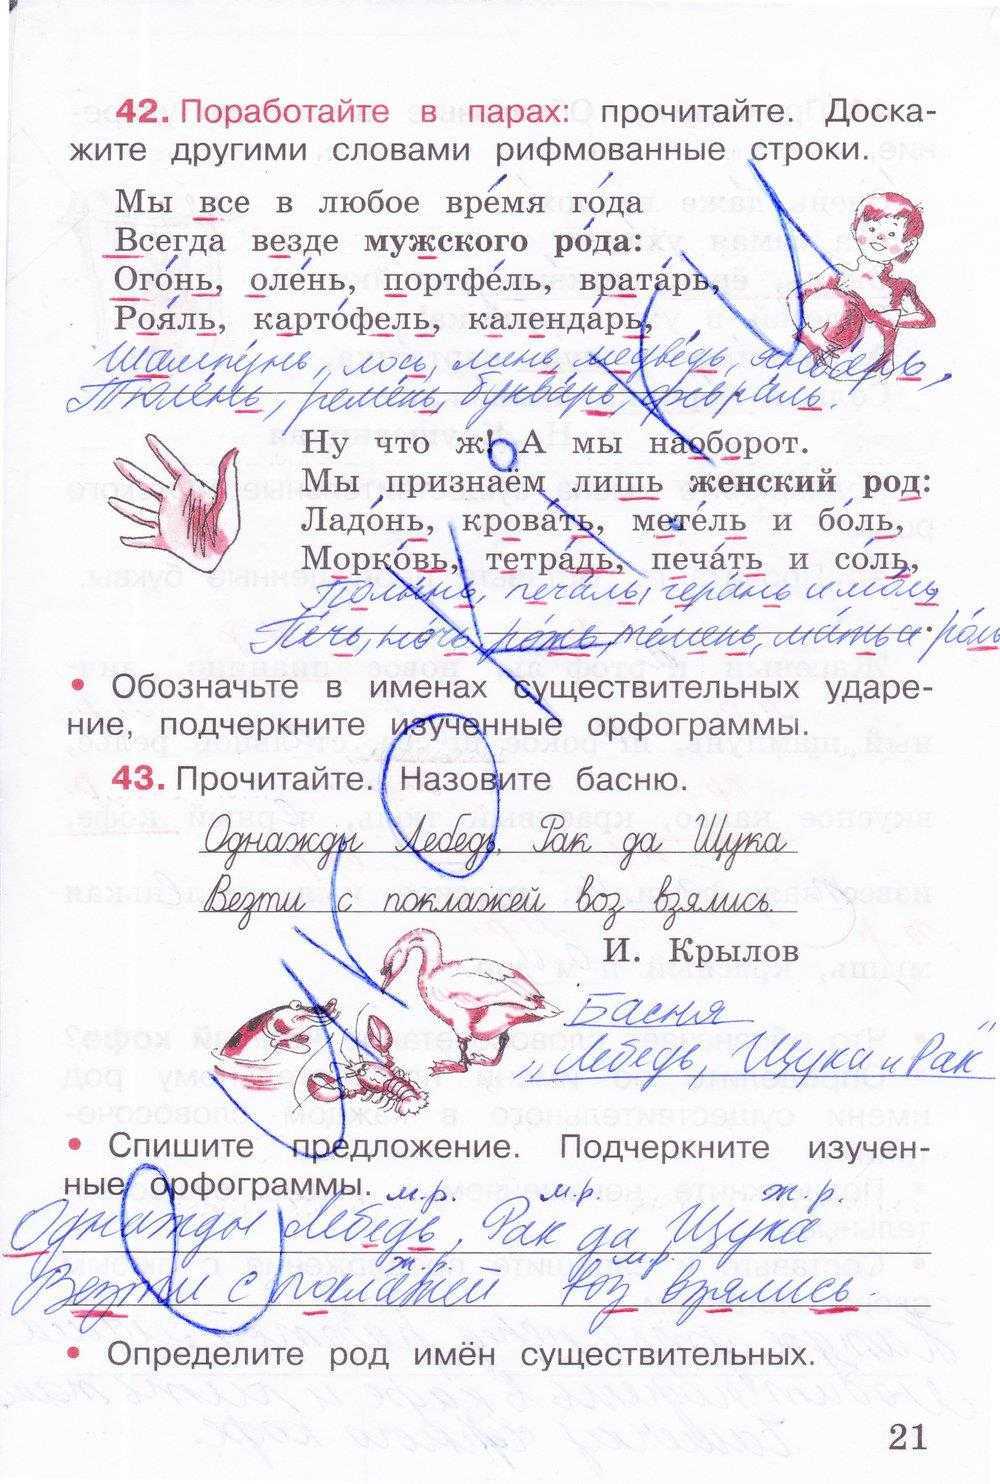 42. Поработайте в парах: прочитайте. Доска-
жите другими словами рифмованные строки.
Мы все в любое вре́мя го́да
Всегда везде мужского ро́да:
Ого́нь, оле́нь, портфе́ль, врата́рь,
Роя́ль, карто́фель, календа́рь,
Шампу́нь, лось, линь, медве́дь, янва́рь,
Тюле́нь, реме́нь, буква́рь, февра́ль.
Ну что ж! А мы наоборот.
Мы признаём лишь женский род:
Ладо́нь, крова́ть, мете́ль и бо́ль,
Морко́вь, тетра́дь, печа́ть и со́ль,
Полы́нь, печа́ль, гера́нь и мо́ль
Пе́чь, но́чь, ро́жь, те́мень, ма́ть и ро́ль
• Обозначьте в именах существительных ударе-
ние, подчеркните изученные орфограммы.
43. Прочитайте. Назовите басню.
Однажды Лебедь, Рак да Щука
Везти с поклажей воз взялись.
И. Крылов
Басня
„Лебедь, Щука и Рак"
• Спишите предложение. Подчеркните изучен-
ные орфограммы.
м.р. м.р. ж.р.
Однажды Лебедь, Рак да Щука
ж.р. м.р.
Везти с поклажей воз взялись.
• Определите род имён существительных.
21